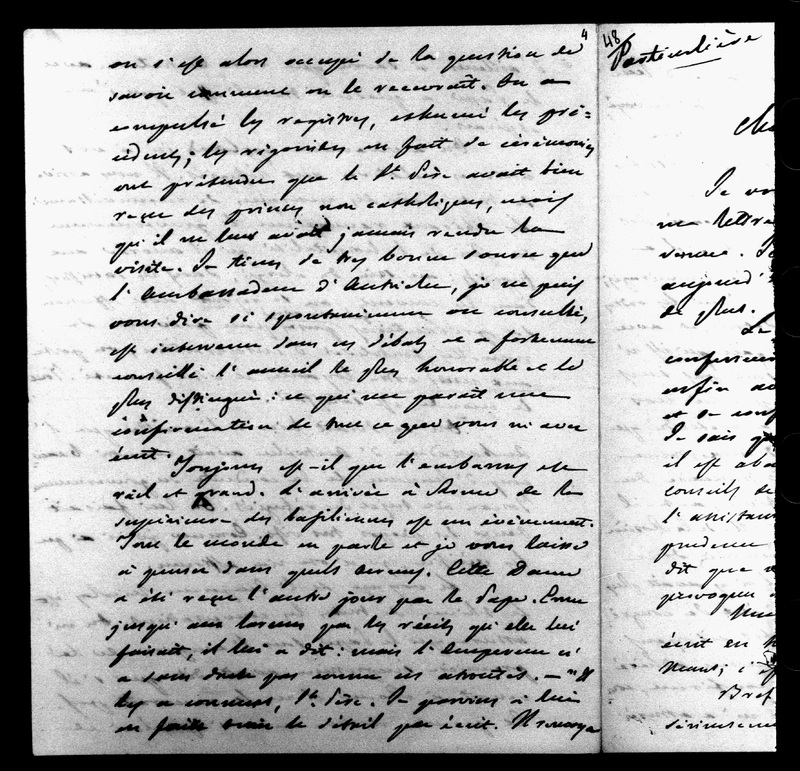 4
on s'est alors occupé de la question de
savoir comment on le recevrait. On a
compulsé les registres, exhumé les pré=
cédents; les rigoristes en fait de cérémonies
ont prétendu que le St Père avait bien
reçu des princes non catholiques, mais
qu'il ne leur avait jamais rendu la
visite. Je tiens de très bonne source que
l'ambassadeur d'Autriche, je ne puis
vous dire si spontanément ou consulté,
est intervenu dans ces débats et a fortement
conseillé l'accueil le plus honorable et le
plus distingué: ce qui me paraît une
confirmation de tout ce que vous m'avez
écrit.
Toujours est-il que l'embarras est
réel et grand. L'arrivée à Rome de la
supérieure des basiliennes est un événement.
Tout le monde en parle et je vous laisse
à penser dans quels termes. Cette Dame
a été reçue l'autre jour par le Pape. Emu
jusqu'aux larmes par les récits qu'elle lui
faisait, il lui a dit: mais l'Empereur n'
a sans doute pas connu ces atrocités. — "Il
les a connues, St Père. Je parvins à lui
en faire tenir le détail par écrit. Il renvoya
48
Particulière
Je vo
ma lettre
aujourd'
de plus.
Le
conférence
enfin
et se conf
Je sais
il est
conseils de
l'assistan
prudence
dit que
provoquer
écrit en
Bref